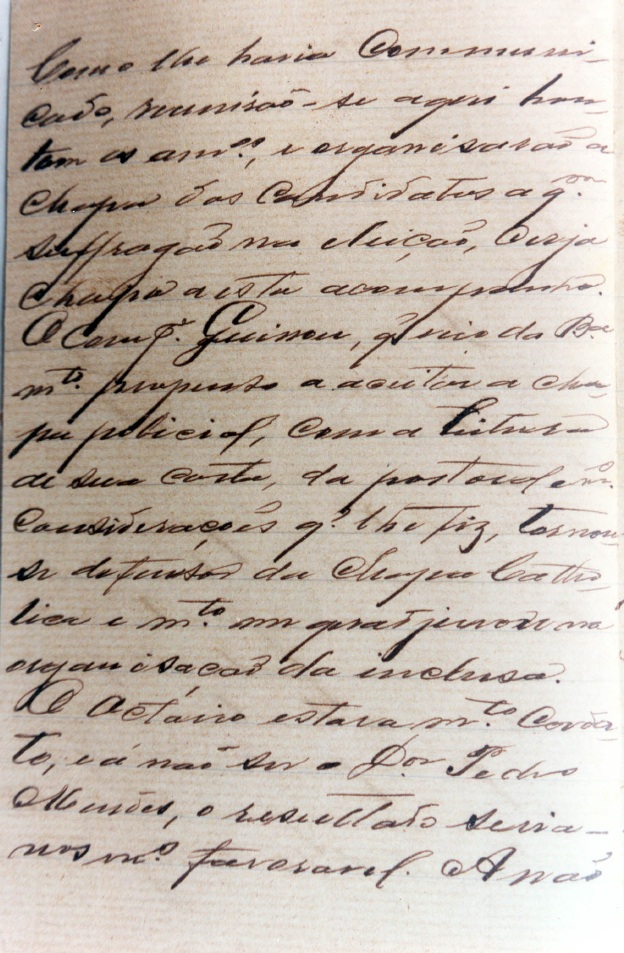 Como lhe havia Communi-
cado, reunirão-se aqui hon-
tem os am.os, e organisarão a
chapa dos Candidatos a q.m
suffragão na eleição, cuja
chapa a esta acompanha.
O Comp.e, q. veio da B.a
m.to propenso a aceitar a cha-
pa policial, com a leitura
de sua carta, da pastoral e m.s
considerações q.' lhe fiz, tornou-
se defensor da Chapa Catho-
lica e m.to me na
organisacão da inclusa.
O Octavio estava m.to Corda-
to, e a não ser o D.or Pedro
Mendes, o resultado seria-
nos m.to favoravel. A não